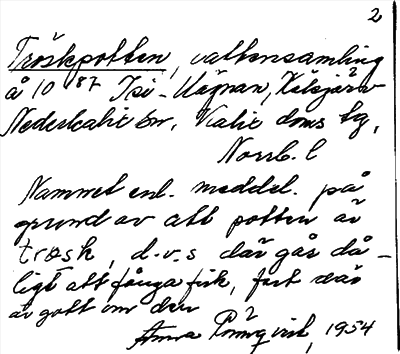 2
Tröskpotten, vattensamling
å 10 87 Isi-Vägnan, Kälsjärv
Nederkalix sn, Kalix doms tg,
Norrb. l
Namnet enl. meddel. på
grund av att potten är
trøsk, d.v.s där går då-
ligt att fånga fisk, fast där
är gott om den
Anna Rönnqvist, 1954